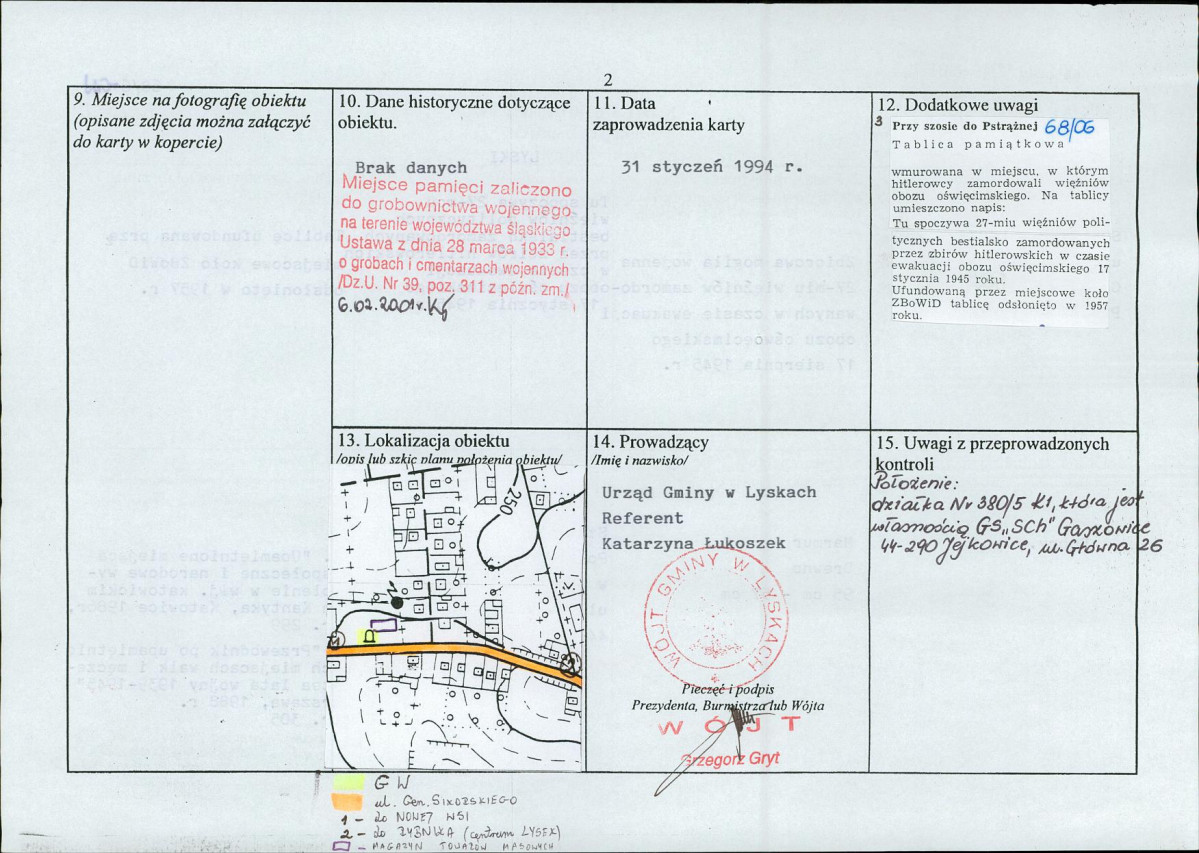 2
9. Miejsce na fotografię obiektu
(opisane zdjęcia można załączyć
do karty w kopercie)
10. Dane historyczne dotyczące
obiektu.
Brak danych
Miejsce pamięci zaliczono
do grobownictwa wojennego
na terenie województwa śląskiego
Ustawa z dnia 28 marca 1933 r.
o grobach i cmentarzach wojennych
/Dz.U. Nr 39, poz. 311 z późn. zm./
6.02.2001r.
11. Data
zaprowadzenia karty
31 styczeń 1994 r.
12. Dodatkowe uwagi
3
Przy szosie do Pstrążnej 68/06
Tablica pamiątkowa
wmurowana w miejscu, w którym
hitlerowcy zamordowali więźniów
obozu oświęcimskiego. Na tablicy
umieszczono napis:
Tu spoczywa 27-miu więźniów poli-
tycznych bestialsko zamordowanych
przez zbirów hitlerowskich w czasie
ewakuacji obozu oświęcimskiego 17
stycznia 1945 roku.
Ufundowaną przez miejscowe koło
ZBoWiD tablicę odsłonięto w 1957
roku.
13. Lokalizacja obiektu
/opis lub szkic planu położenia obiektu/
250
1
2
14. Prowadzący
/Imię i nazwisko/
Urząd Gminy w Lyskach
Referent
Katarzyna Łukoszek
WÓJT GMINY W LYSKACH
Pieczęć i podpis
Prezydenta, Burmistrza lub Wójta
WÓJT
Grzegorz Gryt
15. Uwagi z przeprowadzonych
kontroli
Położenie:
działka Nr 380/5 k1, która jest
własnością GS „SCh" Gaszowice
44-290 Jejkowice, ul. Główna 26
GW
ul. Gen. Sikorskiego
1 - do NOWEJ WSI
2 - do RYBNIKA (centrum LYSEK)
- MAGAZYN TOWARÓW MASOWYCH